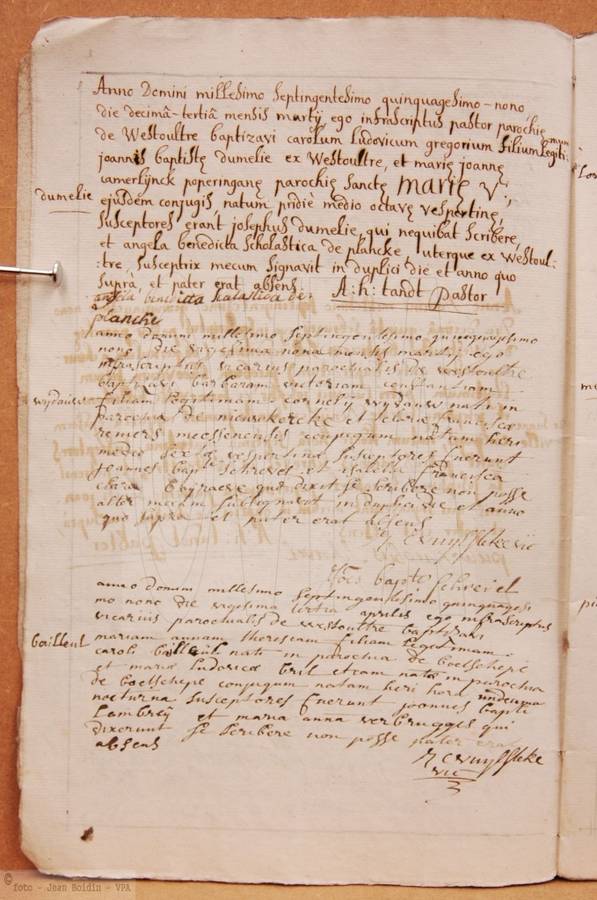 Anno Domini millesimo septingentesimo quinquagesimo-nono,
die decimâ-tertiâ mensis martij ego infrascriptus pastor parochię
de Westoultre baptizavi carolum ludovicum gregorium filium legiti:mum
joannis baptistę dumelie ex Westoultre, et marię joannę
iamerlijnck poperinganę parochię sanctę marię v:,
dumelie
ejusdem conjugis, natum pridie medio octavę vespertinę,
susceptores erant josephus dumelie, qui nequibat scribere,
et angela benedicta scholastica de plancke uterque ex westoul:
:tre, susceptrix mecum signavit in duplici die et anno quo
suprà, et pater erat absens. A:h: tandt Pastor
angela benedicta scalastica de
plancke
anno domini millesimo septingentesimo quinquagesimo
nono die vigesima nona mensis martij ego
infrascriptus vicarius parochialis de westoultre
baptizavi barbaram victoriam constantiam
wydauw
filiam legitimam cornelij wydauw nati in
parochia de nieuwkercke et franciscę
conjugum natam heri
medio sex vespertina susceptores fuerunt
joannes bapt et isabella francisca
clara quę dixit se scribere non posse
alter mecum subsignavit in duplici die et anno
quo supra et pater erat absens
anno domini millesimo septingentesimo quinquagesi
mo nono die vigesima tertia aprilis ego infrascriptus
vicarius parochialis de westoultre baptizavi
bailleul
mariam annam theresiam filiam legitimam
caroli bailleul nati in parochia de boeschepe
et maria ludovica bril etiam nata in parochia
de boeschepe conjugum natam heri hora undecima
nocturna susceptores fuerunt joannes bapti
et maria anna verbrugge qui
dixerunt se scribere non posse pater erat
absens
© foto - Jean Boidin - VPA